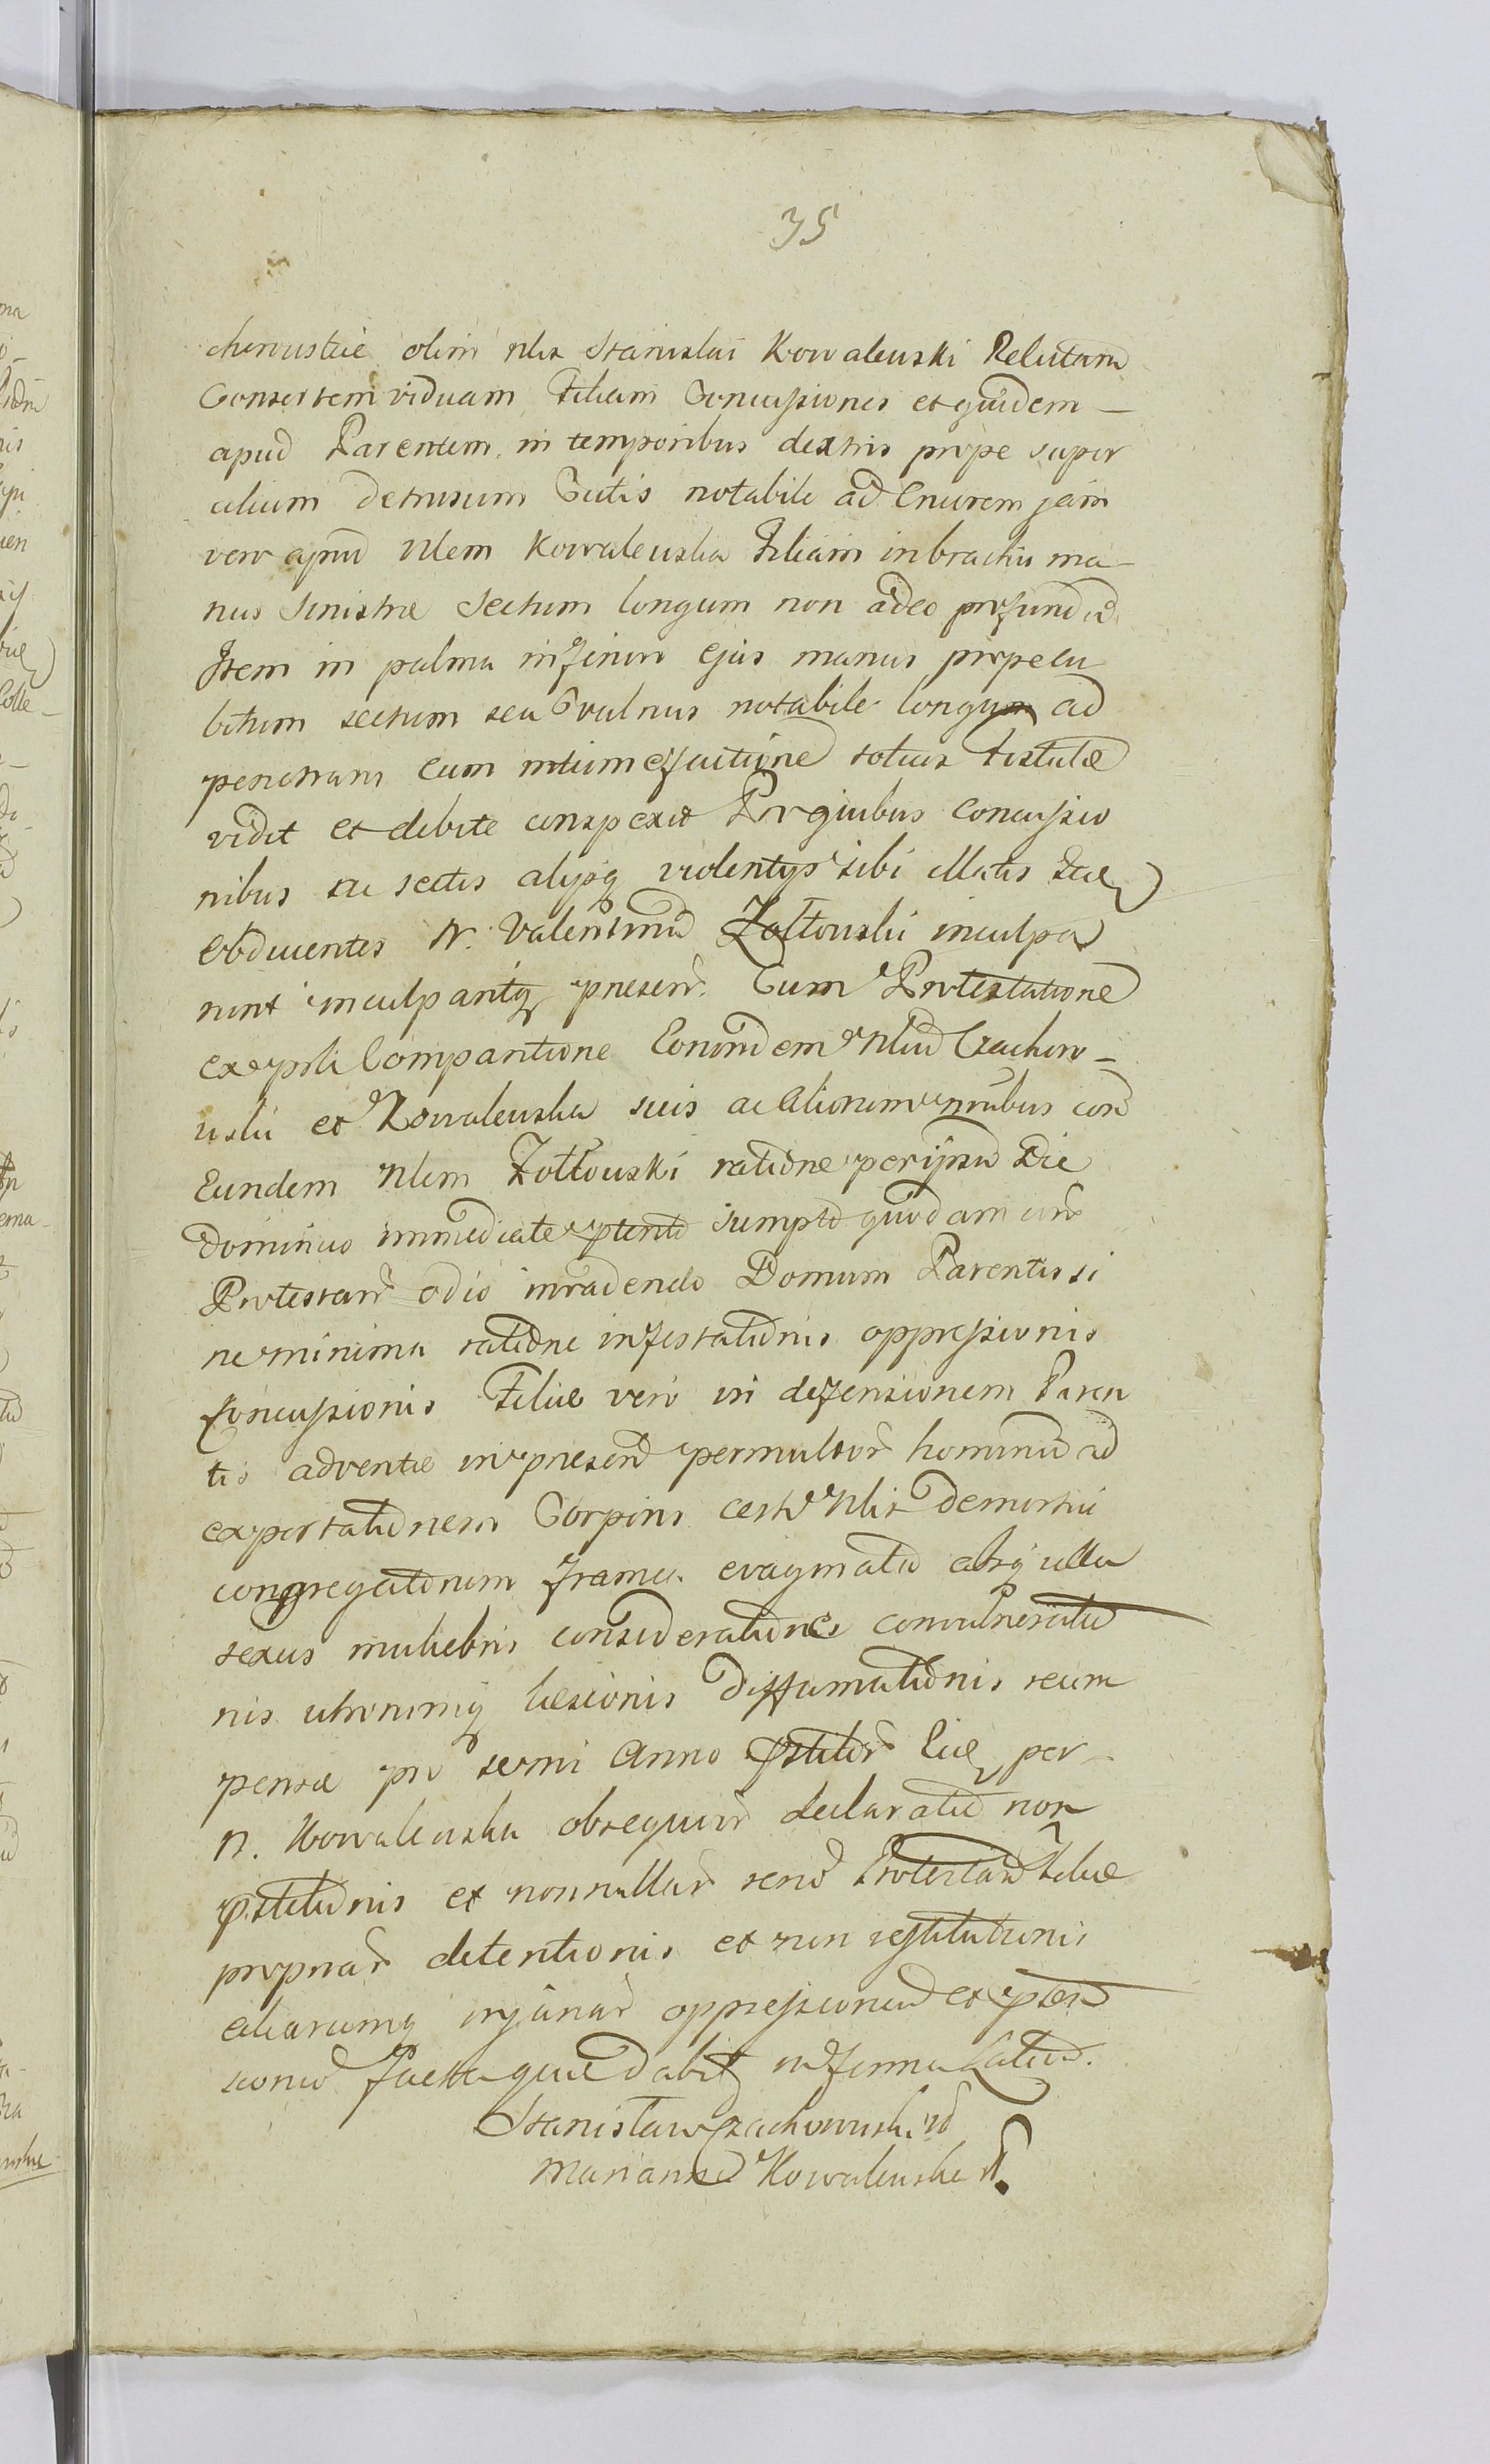 35
chowuskie olim Nlis Stanislai Kowalewski Relictam
Consortem viduam Filiam Concussiones et quidem —
apud Parentem in temporibus dextris prope super
cilium detrusum Cutis notabile ad Cruorem jam
vero apud Nlem Kowalewska Filiam in brachio ma-
nus Sinistræ Sectum longum non adeo profund
Item in palma inferiori Ejus manus prope cu
bitum sectum seu Vulnus notabile longum ad
penetrans cum totius Fistulæ
vidit et debite conspexit Pro quibus Concussio
nibus ac sectis alijsq violentijs sibi illatis
Obducentes N. Valentinu Zołtowski inculpa
runt inculpantq præsen. Cum Protestatione
ex Compartione Eorundem Nliu Czacho-
wski et Kowalewska suis ac Aliorum nnibus con
Eundem Nlem Zołtowski ratione per ipsu Die
Dominico immediate pterito Sumpto quodam con
Protestan odio invadendo Domum Parentis si
ne minima ratione infestationis oppressionis
Concussionis Filiæ vero in defensionem Paren
tis adventæ in præsen permultor hominu ad
exportationem Corporis certi Nlis demortui
congregatorum framea evaginata absq ulla
sexus muliebris consideratione convulneratio
nis utrorumq læsionis diffamationis recom
pensæ pro semi Anno per-
N. Kowalewska obsequior declaratæ non
pstitionis et nonnullar rerum Protestan Filiæ
propriar detentionis et non restitutionis
aliarumq injuriar oppressionu et
sionu facta quæ dabit in forma Latius.
Stanisław Czachowski
Marianna Kowalewska